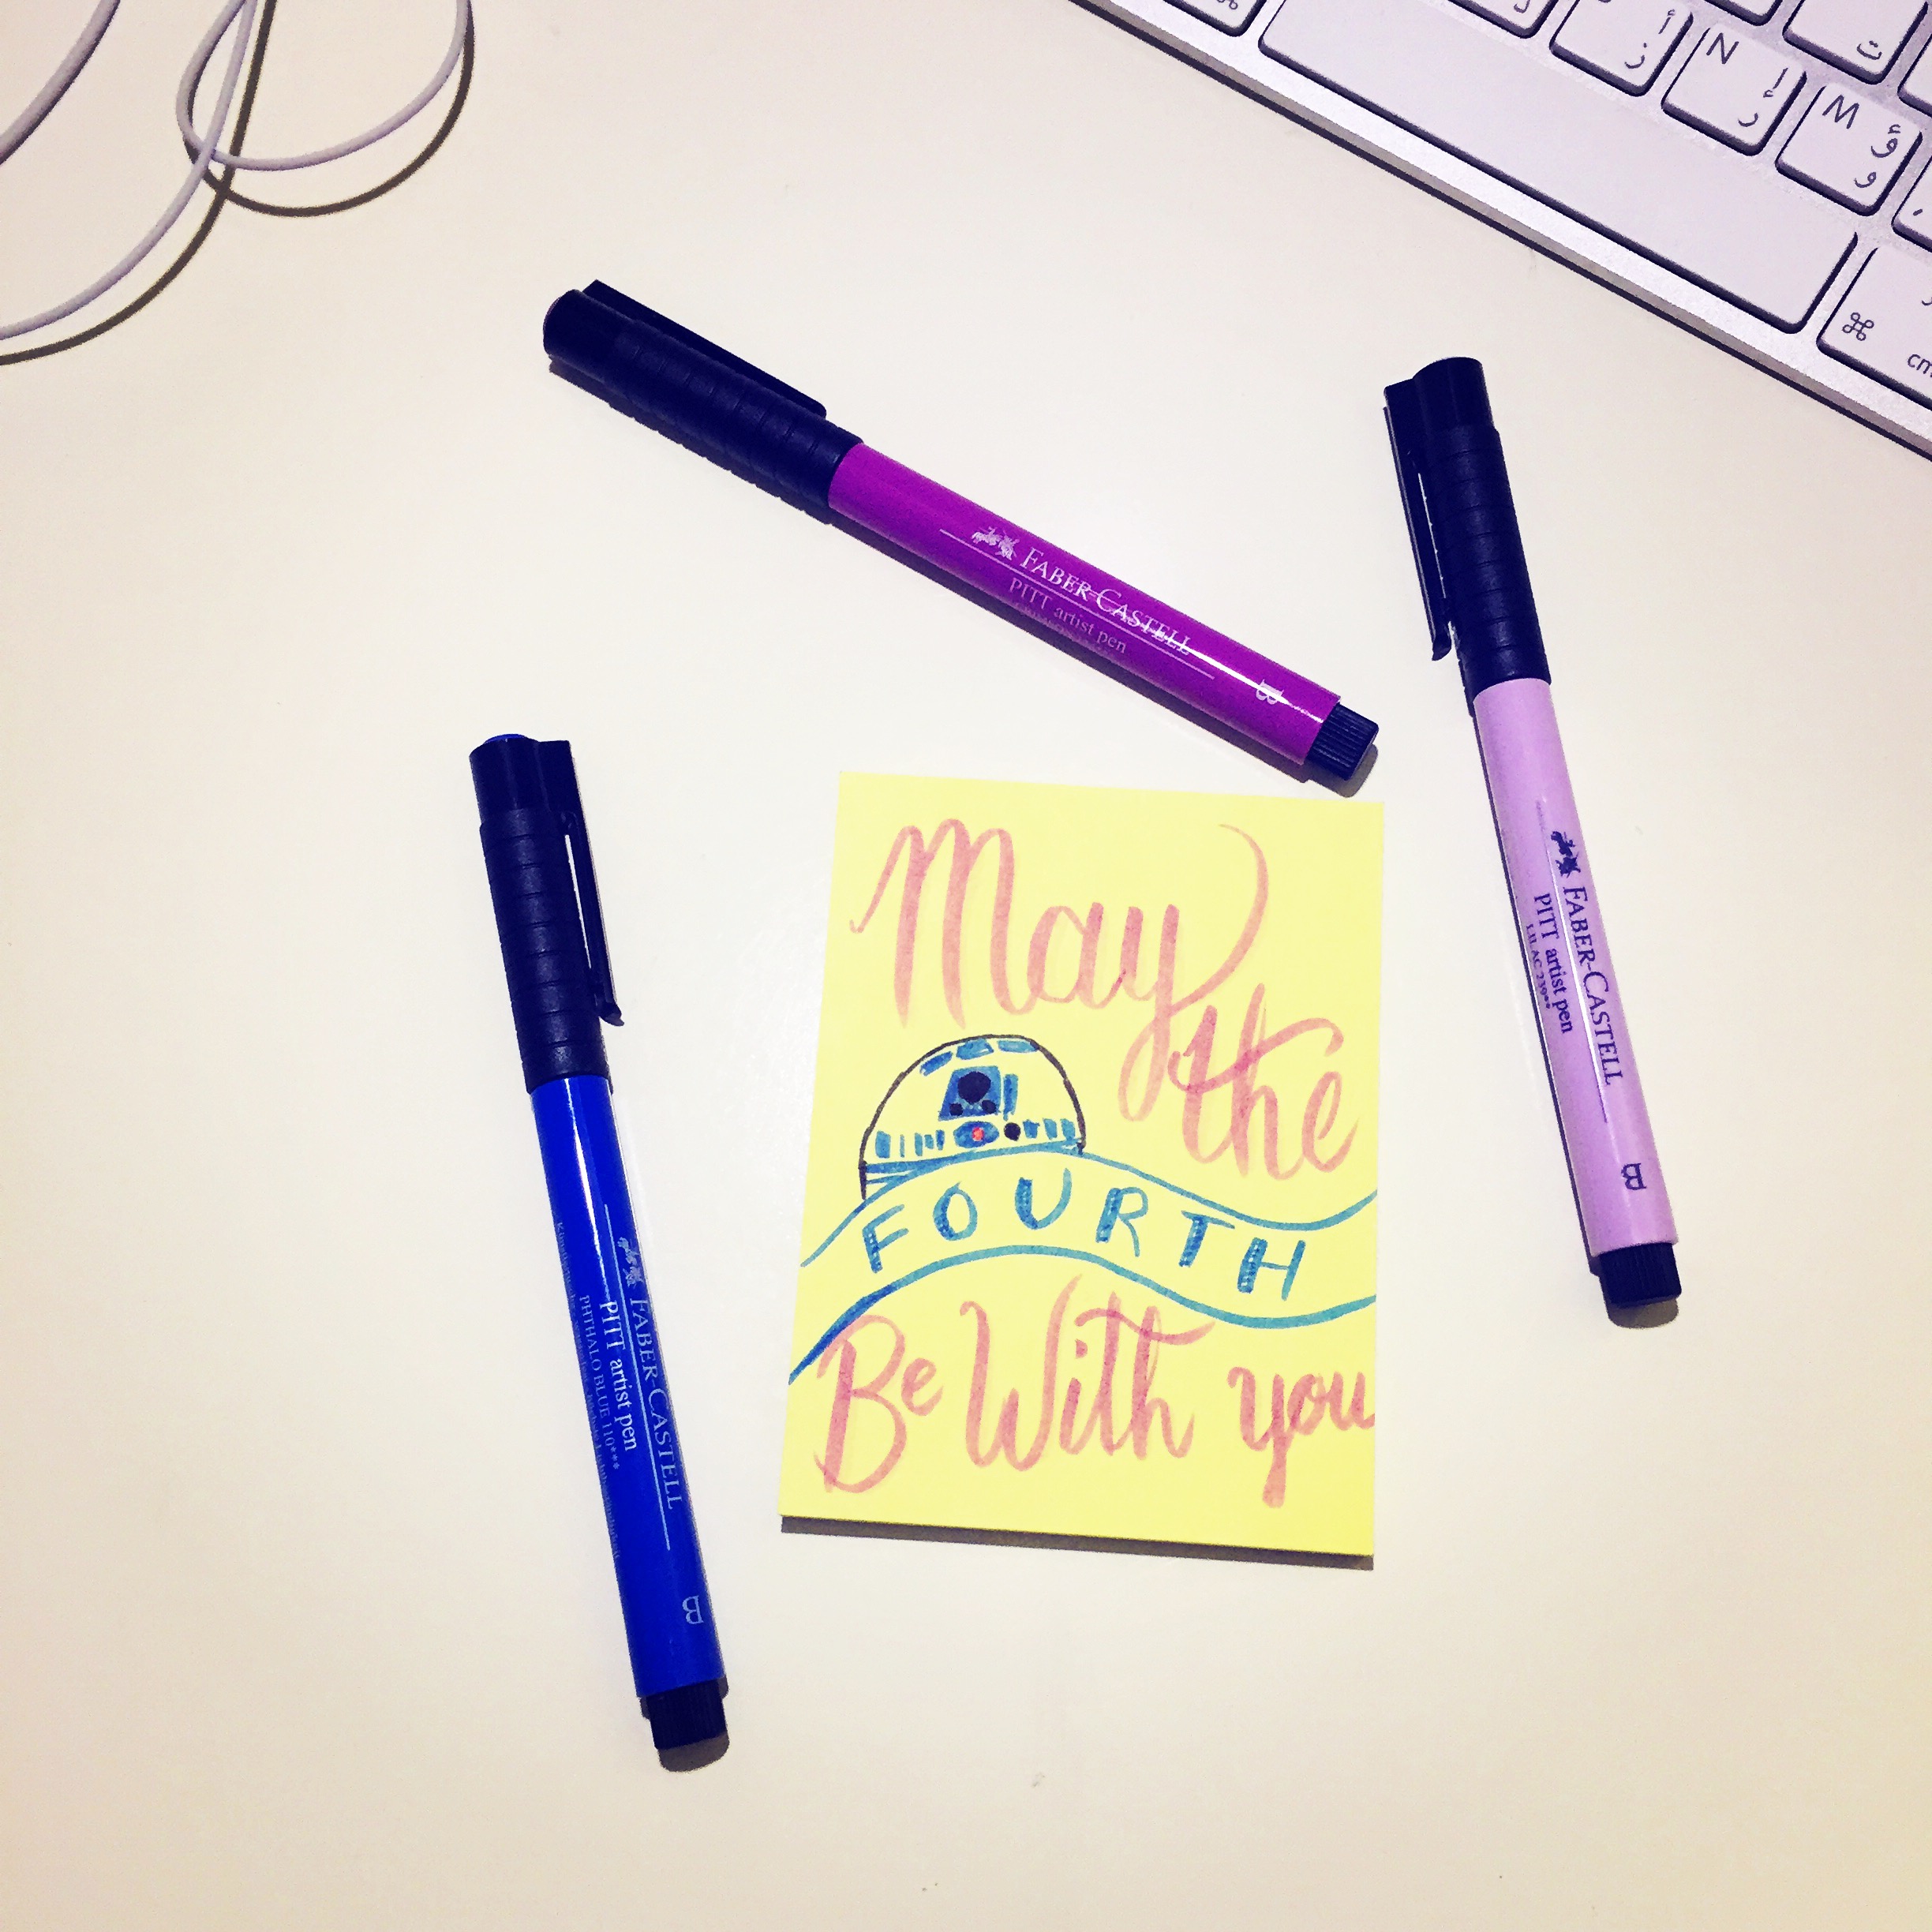 N
أ
ز
إ
ر
M
ؤ
و
ت
⌘
FABER-CASTELL
PITT artist pen
B
FABER-CASTELL
PITT artist pen
LILAC 239**
B
May
the
FOURTH
Be With you
FABER-CASTELL
PITT artist pen
PHTHALO BLUE 110***
B